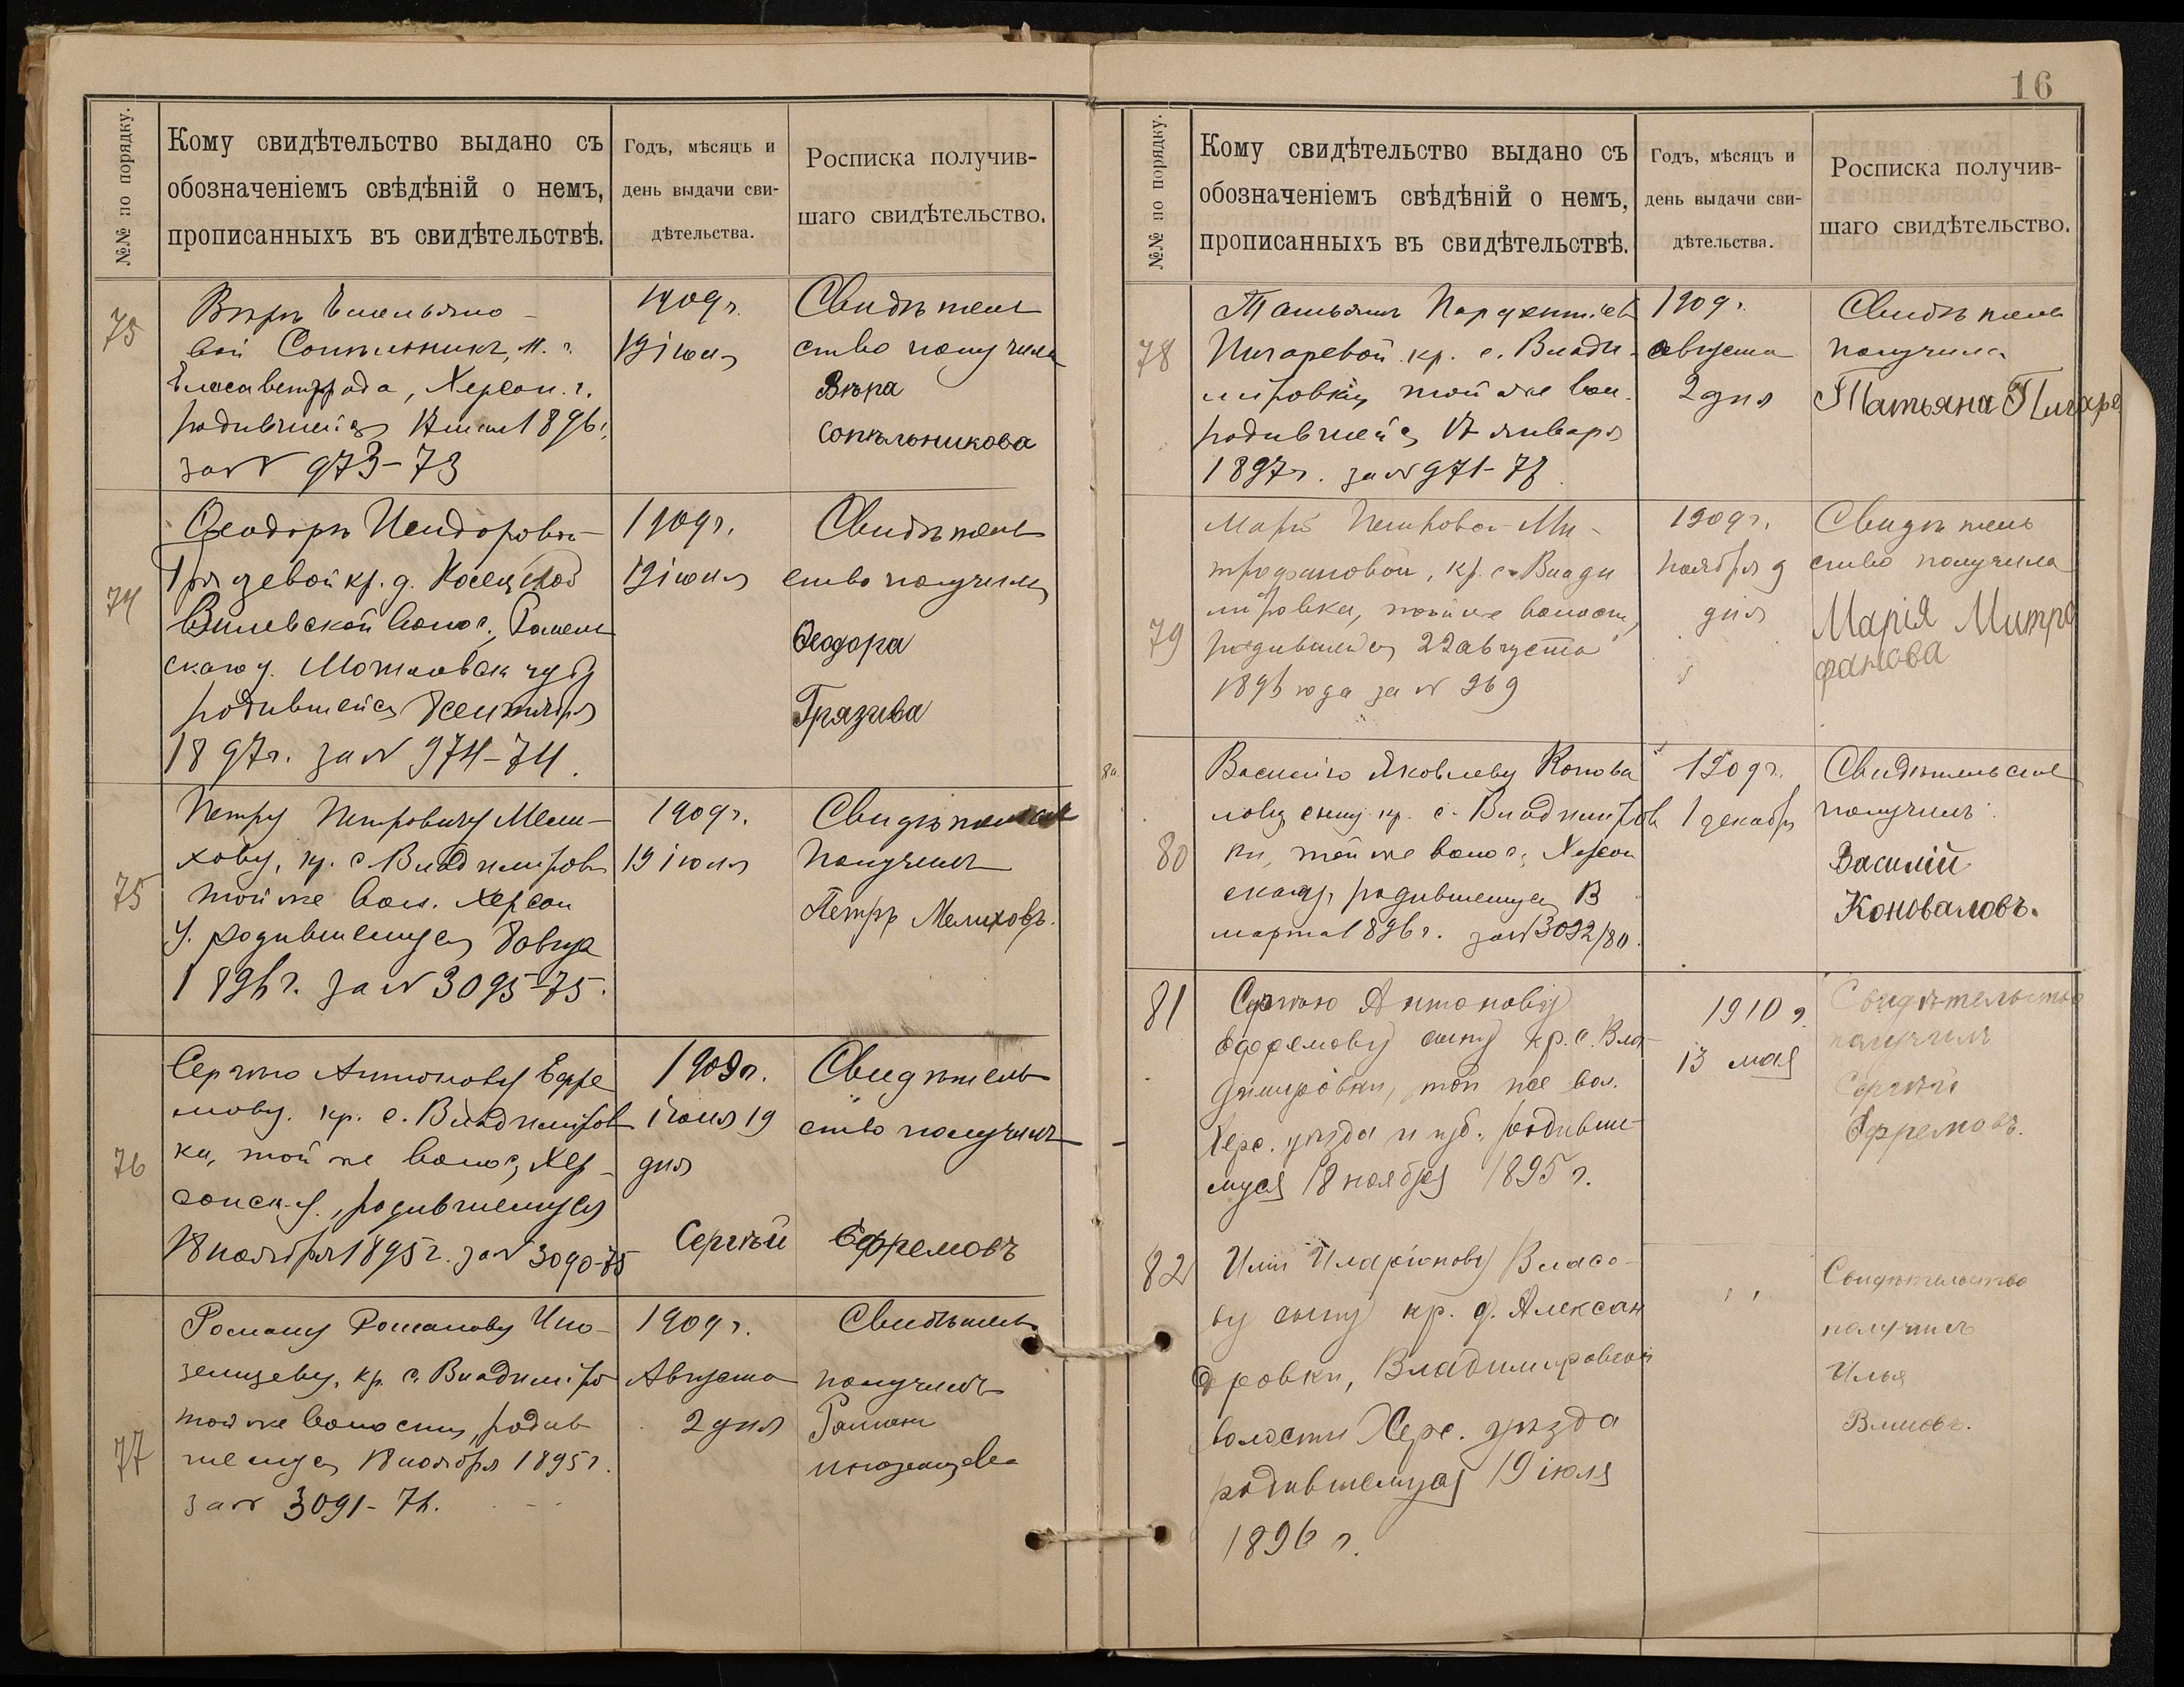 №№ по порядку.
Кому свидѣтельство выдано съ
обозначеніемъ свѣдѣній о немъ,
прописанныхъ въ свидѣтельствѣ.
Годъ, мѣсяцъ и
день выдачи сви-
дѣтельства.
Росписка получив-
шаго свидѣтельство.
73
Вѣрѣ Емельяно-
вой
Елисаветграда, Херсон. г.
родившейся 1896 г.
за № 973-73
1909 г.
19 іюня
Свидѣтель
ство получила
Вѣра
Сопѣльникова
74
Ѳеодорѣ Исидоровой
Грязевой кр. д.
волос.,
родившейся сентября
1897 г. за № 974-74.
1909 г.
19 іюня
Свидѣтель
ство получила
Ѳеодора
Грязива
75
Петру Петровичу Мели-
хову, кр. с. Владимировк
той же вол. Херсон
у. родившемуся
1896 г. за № 3095-75.
1909 г.
19 іюня
Свидѣтельст
получилъ
Петръ Мелиховъ.
76
Сергѣю Антонову Ефре
мову. кр. с. Владимиров
ки, той же волос, Хер-
сонск. у., родившемуся
18 ноября 1895 г. за № 3090-75
1909 г.
іюня 19
дня
Свидѣтель
ство получилъ
Сергѣй Ефремовъ
77
Роману Романову Ино-
земцеву, кр. с. Владимиро
той же волости, родив
шемуся 18 ноября 1895 г.
за № 3091-76.
1909 г.
Августа
2 дня
Свидѣтель
получилъ
Роман
Иноземцева
16
№№ по порядку.
Кому свидѣтельство выдано съ
обозначеніемъ свѣдѣній о немъ,
прописанныхъ въ свидѣтельствѣ.
Годъ, мѣсяцъ и
день выдачи сви-
дѣтельства.
Росписка получив-
шаго свидѣтельство.
78
Татьянѣ
Пигаревой кр. с. Влади-
мировки, той же вол.
родившейся 17 января
1897 г. за № 971-78
1909 г.
августа
2 дня
Свидѣтель
получила
Татьяна Пигаре
79
Маріи Петровой Ми-
трофановой, кр. с. Влади
мировки, той же волости,
родившейся 22 августа
1896 года за № 969
1909 г.
ноября 9
дня
Свидѣтель
ство получила
Марія Митро
фанова
80
Василію Яковлеву Конова
лову сыну кр. с. Владимиров
ки, той же волос, Херсон
скаго у, родившемуся 13
марта 1896 г. за № 3092/80.
1909 г.
1 декабря
Свидѣтельств
получилъ
Василій
Коноваловъ.
81
Сергѣю Антонову
Ефремову сыну кр. с. Вла-
димировки, той же вол.
Херс. уѣзда и губ. родивше-
муся 18 ноября 1895 г.
1910 г.
13 мая
Свидѣтельство
получилъ
Сергѣй
Ефремовъ.
82
Ильи Иларіонову Власо-
ву сыну кр. д. Алексан
дровки, Владимировской
волости Херс. уѣзда
родившемуся 19 іюля
1896 г.
Свидѣтельство
получилъ
Илья
Власовъ.